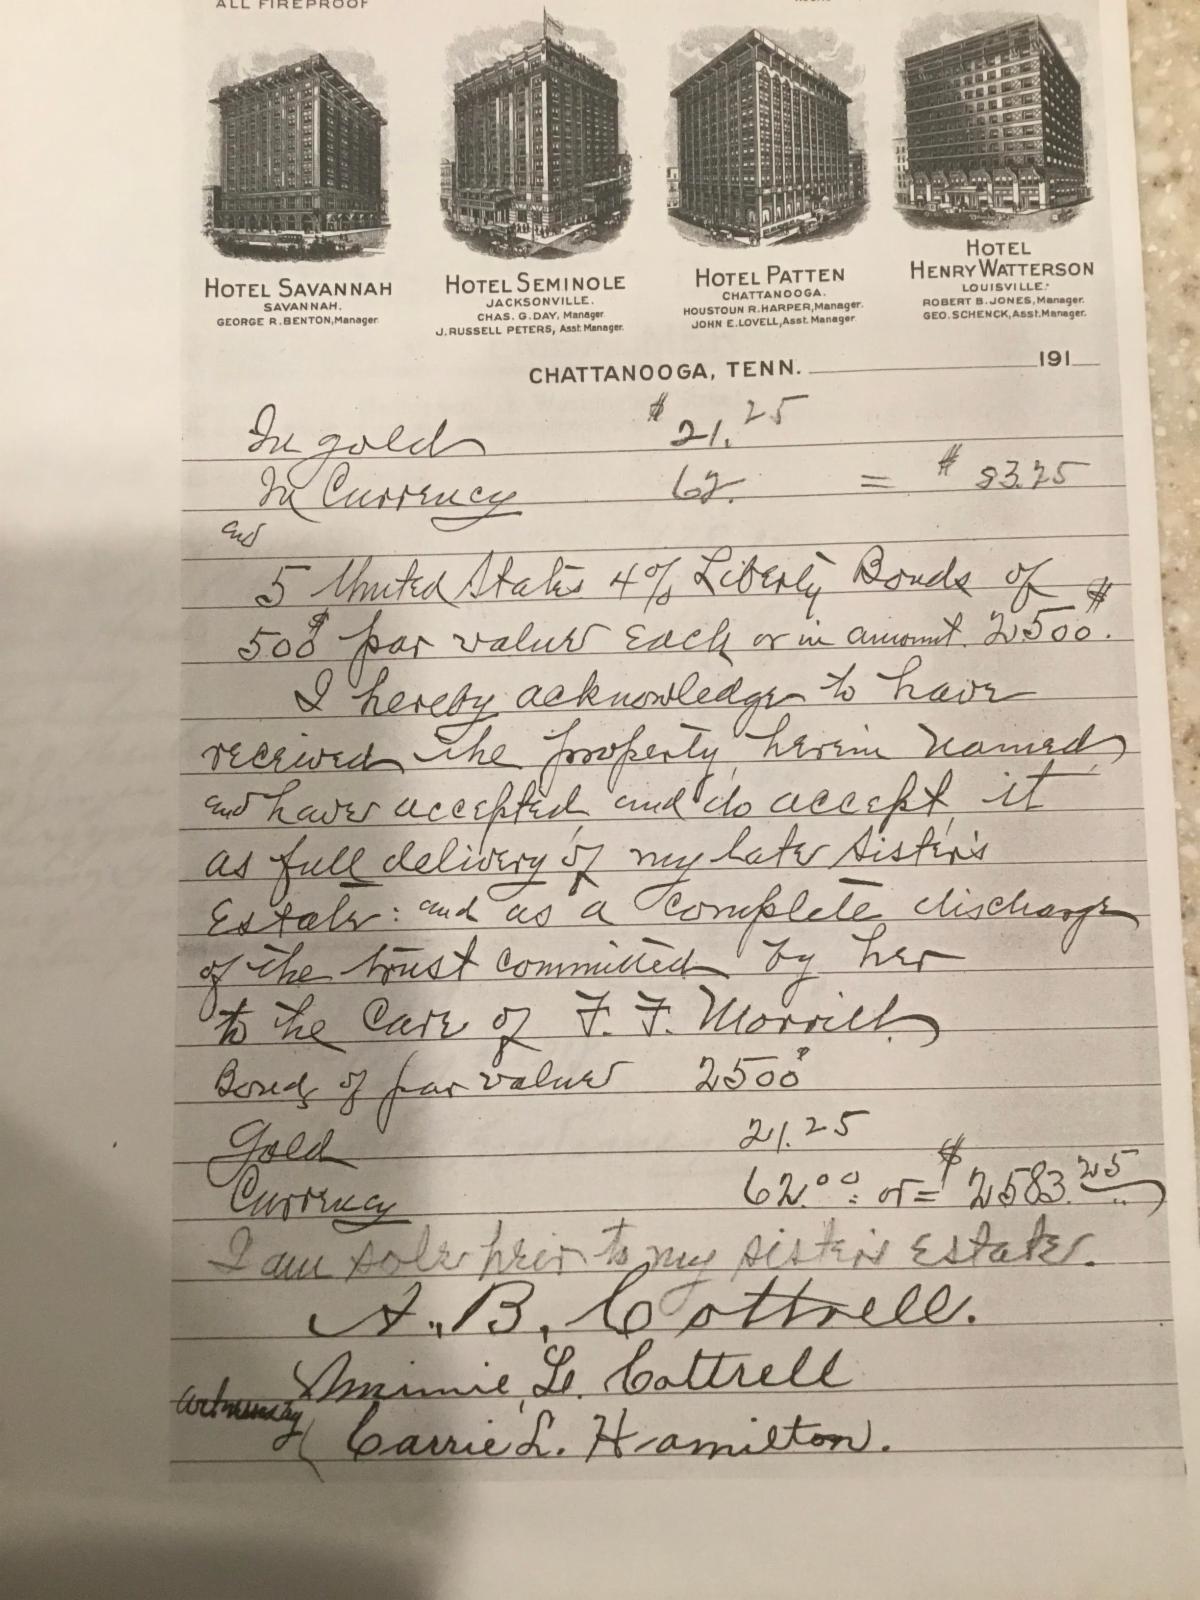 ALL FIREPROOF
HOTEL SAVANNAH
SAVANNAH.
GEORGE R. BENTON, Manager.
HOTEL SEMINOLE
JACKSONVILLE.
CHAS. G. DAY, Manager.
J. RUSSELL PETERS, Asst. Manager.
HOTEL PATTEN
CHATTANOOGA.
HOUSTOUN R. HARPER, Manager.
JOHN E. LOVELL, Asst. Manager.
HOTEL
HENRY WATTERSON
LOUISVILLE.
ROBERT B. JONES, Manager.
GEO. SCHENCK, Asst. Manager.
CHATTANOOGA, TENN. 191
In gold $21.25
In Currency 62. = $83.25
and
5 United States 4% Liberty Bonds of
500$ par value each or in amount 2500$.
I hereby acknowledge to have
received the property herein named,
and have accepted and do accept it
as full delivery of my late sister's
Estate: and as a complete discharge
of the trust committed by her
to the care of F. F. Morrill.
Bonds of par value 2500$
Gold 21.25
Currency 62.00: or = $2583.25
I am sole heir to my sister's estate.
A. B. Cottrell.
Minnie L. Cottrell
Witnessed by
Carrie L. Hamilton.